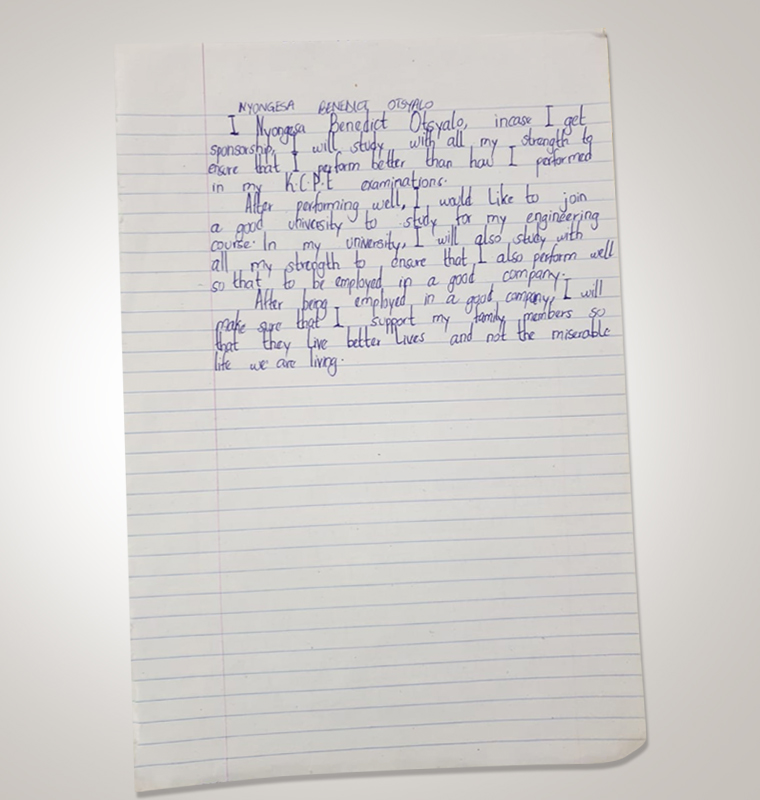 NYONGESA BENEDICT OTSYALO
I Nyongesa Benedict Otsyalo, incase I get
sponsorship, I will study with all my strength to
ensure that I perform better than how I performed
in my K.C.P.E examinations.
After performing well, I would like to join
a good university to study for my engineering
course. In my university, I will also study with
all my strength to ensure that I also perform well
so that to be employed in a good company.
After being employed in a good company, I will
make sure that I support my family members so
that they live better lives and not the miserable
life we are living.